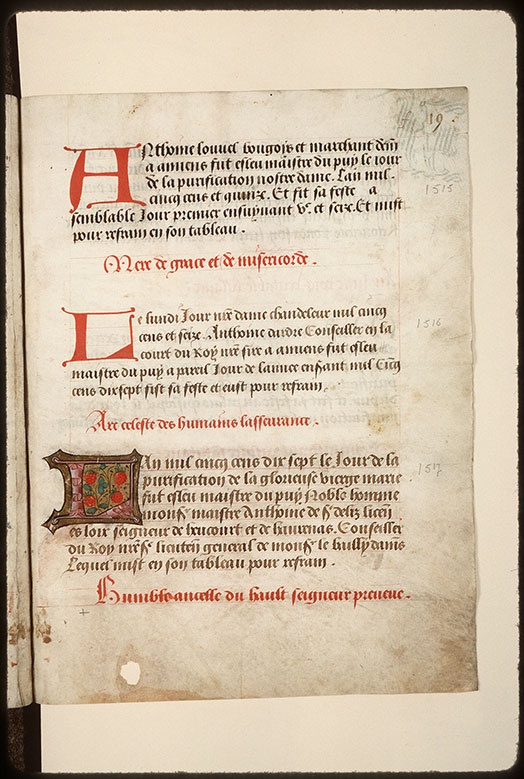 19.
Anthoine louvel bourgois et marchant dem̃
a amiens fut esleu maistre du puy le iour
de la purification nostre dame. Lan mil
cincq cens et quinze. Et fit sa feste a
semblable Jour premier ensuyuant vͨ. et seize. Et mist
pour refrain en son tableau.
1515
Mere de grace et de misericorde.
Le lundi Jour nr̃e dame chandeleur mil cincq
cens et seize. Anthoine Conseiller en la
court du Roy nr̃e sire a amiens fut esleu
maistre du puy a pareil Jour de lannee ensuant mil Cincq
cens dixsept fist sa feste et eust pour refrain.
1516
Arc celeste des humains lasseurance.
Lan mil cincq cens dix sept le Jour de la
purification de la glorieuse vierge marie
fut esleu maistre du puy Noble homme
monsr̃ maistre Anthoine de sͭ deliz licen̄
es loix seigneur de heucourt et de haurenas. Conseiller
du Roy nr̃e sr̃ lieuten̄ general de monsr̃ le bailly damiens
Lequel mist en son tableau pour refrain.
1517
Humble ancelle du hault seigneur preueue.